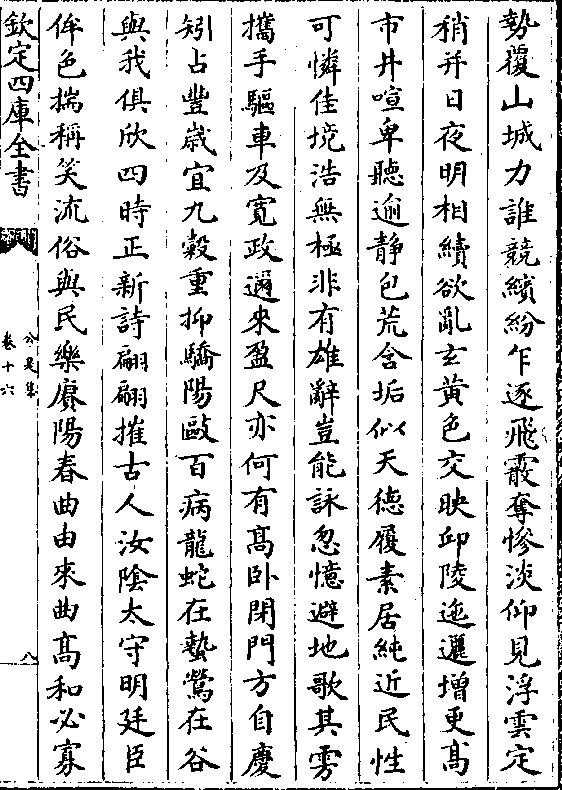 勢覆山城力誰競繽紛乍逐飛霰奪慘淡仰見浮雲定
稍并日夜明相續欲亂玄黄色交映邱陵迤邐增更髙
市井喧卑聽逾靜包荒含垢似天徳履素居純近民性
可憐佳境浩無極非有雄辭豈能詠忽憶避地歌其雱
攜手驅車及寛政邇來盈尺亦何有髙卧閉門方自慶
矧占豐嵗宜九榖重抑驕陽敺百病龍蛇在蟄鶯在谷
與我俱欣四時正新詩翩翩摧古人汝隂太守明廷臣
侔色揣稱笑流俗與民樂賡陽春曲由來曲髙和必寡
欽定四庫全書
公是集
卷十六
八